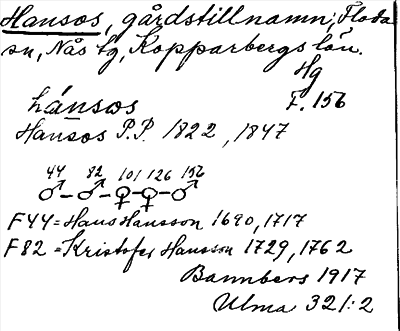 Hansos, gårdstillnamn; Floda
sn, Nås tg, Kopparbergs län.
Hg
hánsɷs F. 156
Hansos P.P. 1822, 1847
44 82 101 126 156
♂–♂–♀–♀–♂
F44 = Hans Hansson 1690, 1717
F82 = Kristofer Hansson 1729, 1762
Bannbers 1917
Ulma 321:2